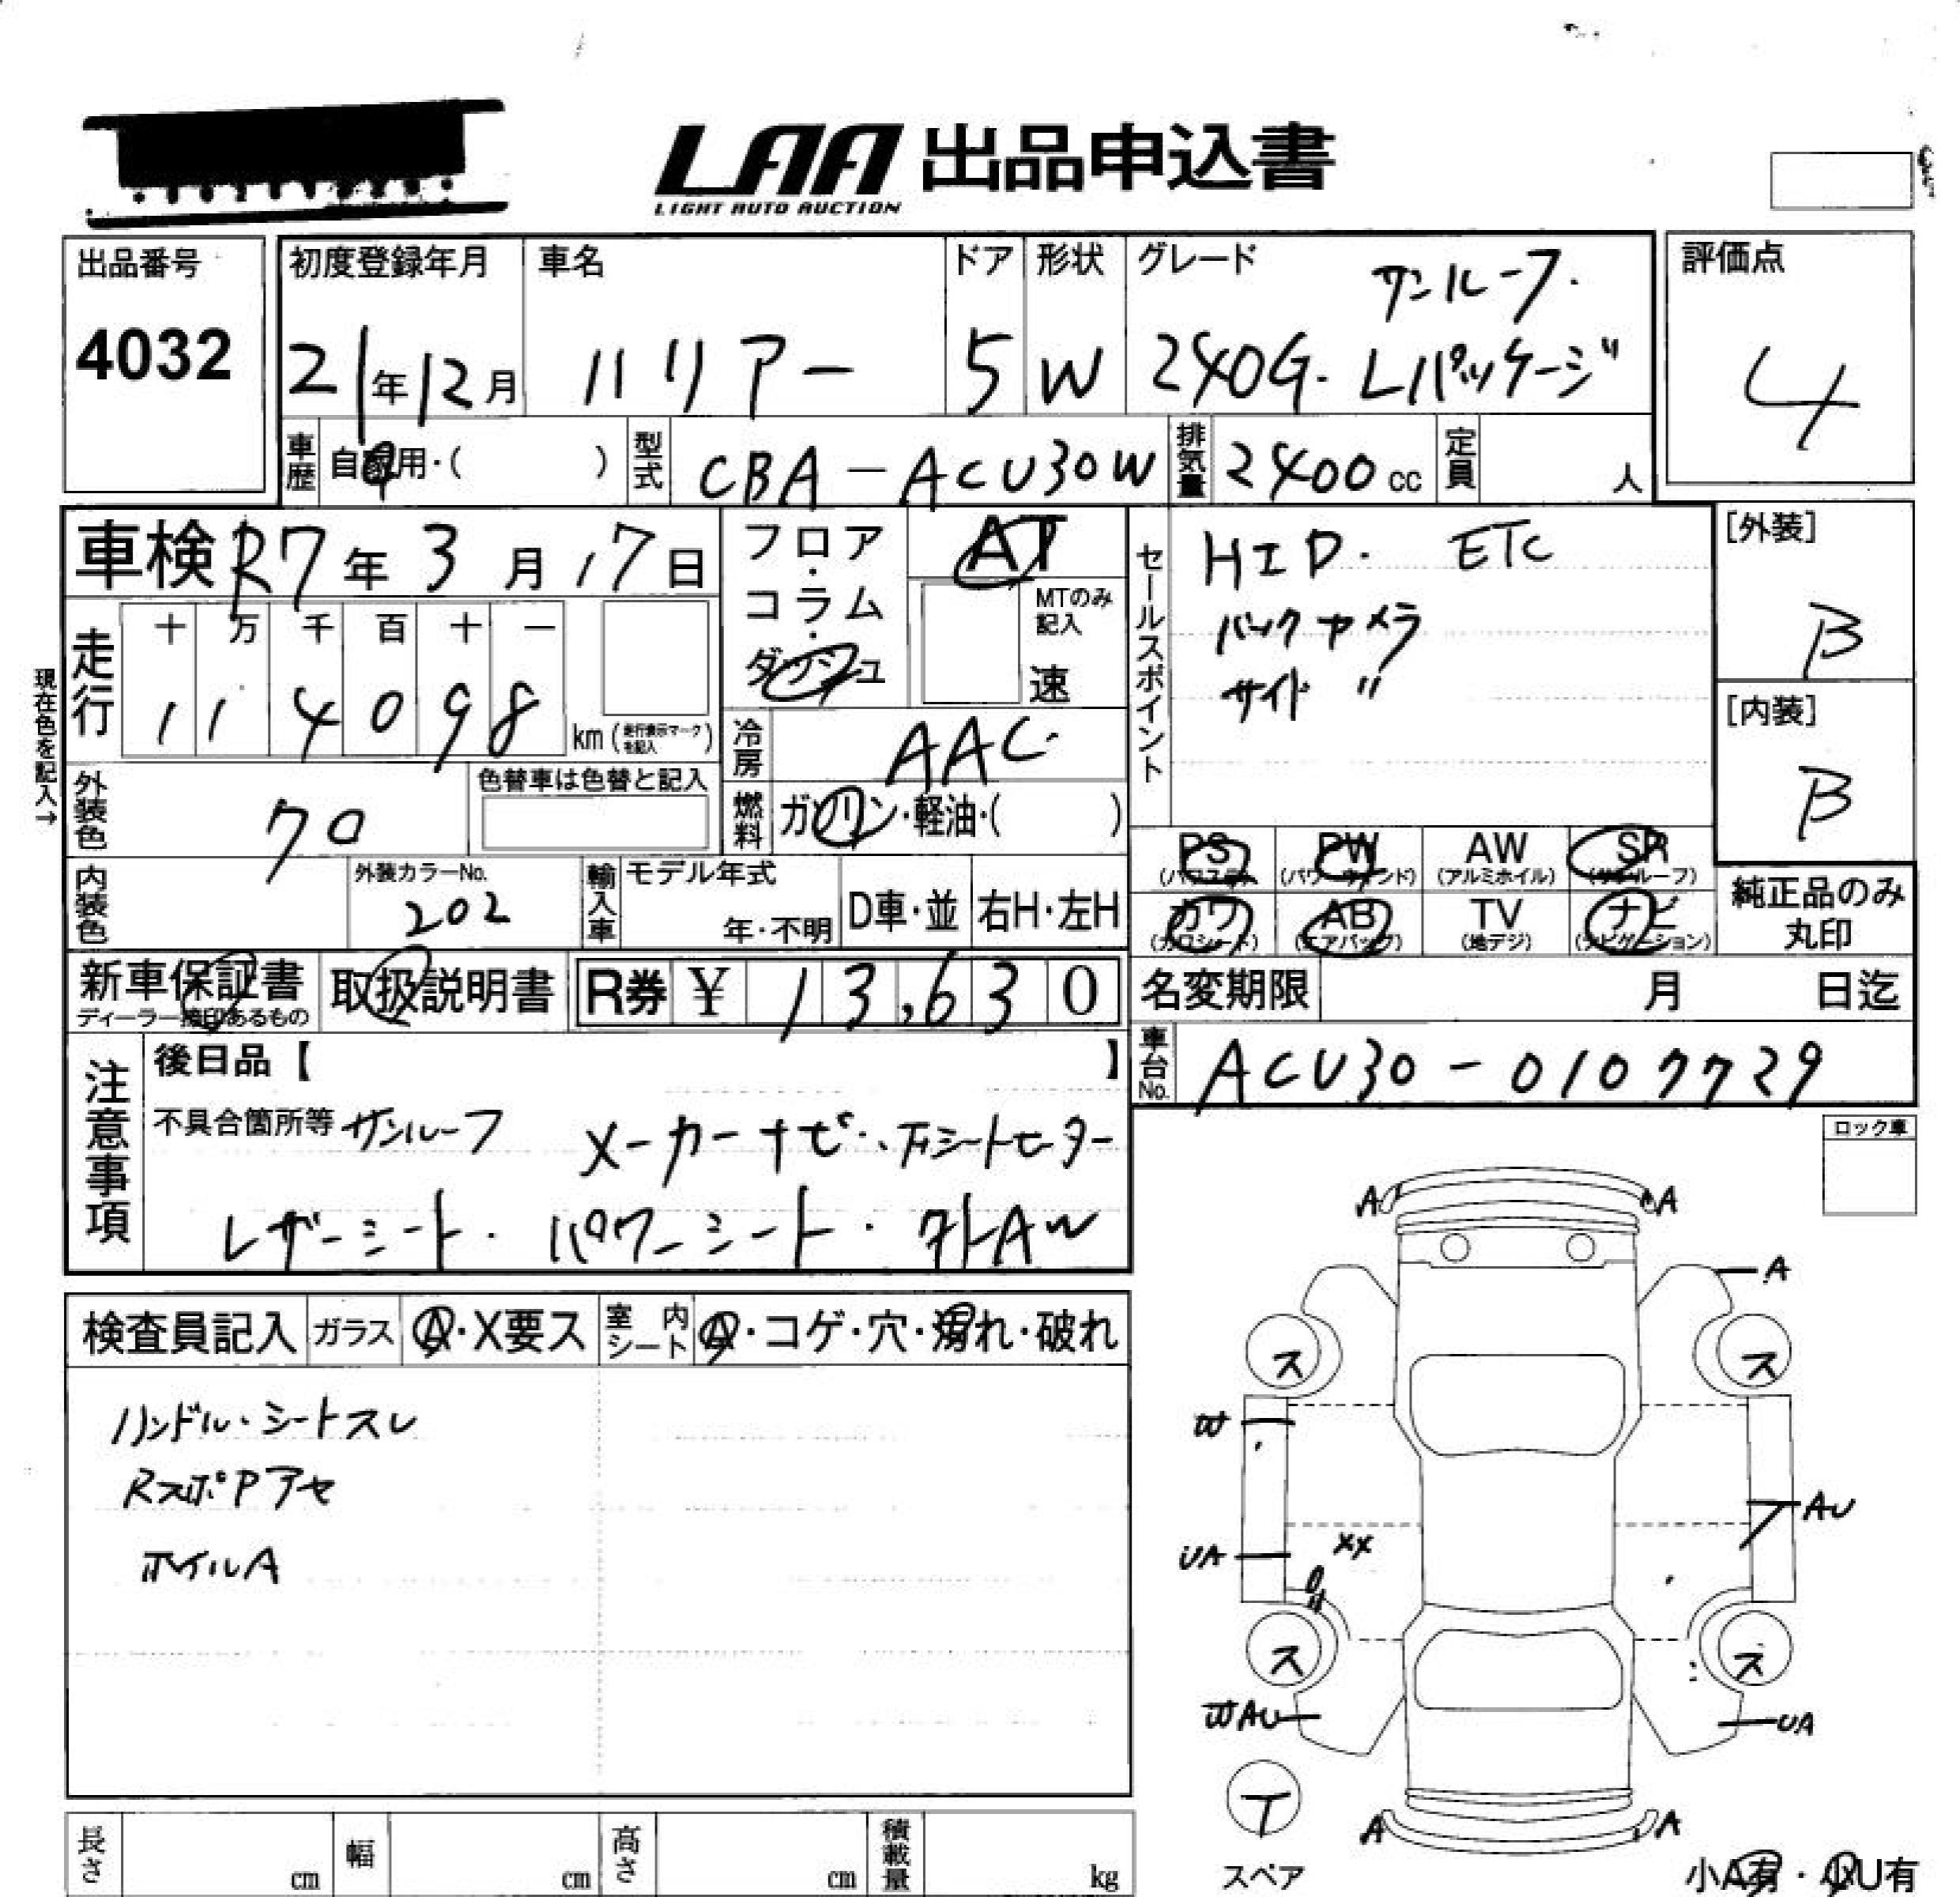 LAA 出品申込書
LIGHT AUTO AUCTION
出品番号
4032
初度登録年月
21年12月
車名
ハリアー
ドア
5
形状
W
グレード
サンルーフ・
240G・Lパッケージ
評価点
4
車歴
自家用・( )
型式
CBA-ACU30W
排気量
2400cc
定員
人
車検 R7年3月17日
フロア・コラム・ダッシュ
AT
MTのみ記入
速
セールスポイント
HID・ ETC
バックカメラ
サイド 〃
[外装]
B
[内装]
B
現在色を記入→
走行
十 万 千 百 十 一
1 1 4 0 9 8
km (走行表示マークを記入)
冷房
AAC
外装色
クロ
色替車は色替と記入
燃料
ガソリン・軽油・( )
内装色
外装カラーNo.
202
輸入車
モデル年式
年・不明
D車・並
右H・左H
PS
(パワステ)
PW
(パワーウィンド)
AW
(アルミホイル)
SR
(サンルーフ)
カワ
(カワシート)
AB
(エアバッグ)
TV
(地デジ)
ナビ
(ナビゲーション)
純正品のみ
丸印
新車保証書
ディーラー捺印あるもの
取扱説明書
R券 ¥ 13,630
名変期限
月 日迄
注意事項
後日品【 】
車台No.
ACU30-0107729
不具合箇所等 サンルーフ メーカーナビ・
シートヒーター
レザーシート・パワーシート・
AW
ロック車
検査員記入
ガラス
A・X要ス
室内シート
A・コゲ・穴・汚れ・破れ
ハンドル・シートスレ
RスポPアセ
ホイルA
A A
A
ス ス
W
AU
UA
XX
ス ス
WAU
UA
T
スペア
A A
小A有・小U有
長さ
cm
幅
cm
高さ
cm
積載量
kg